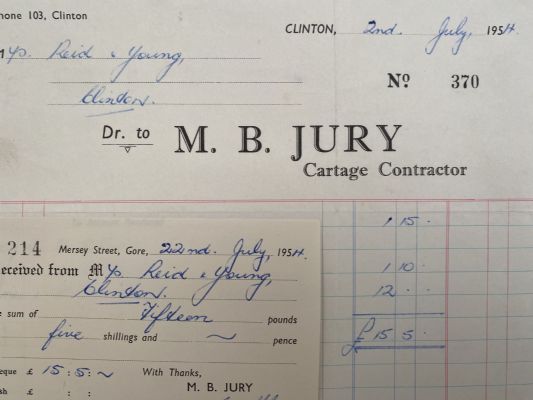 hone 103, Clinton
CLINTON, 2nd. July, 1954.
M/s. Reid & Young,
Clinton.
No 370
Dr. to M. B. JURY
Cartage Contractor
1 15 .
1 10 .
12 . .
£ 15 5 .
214 Mersey Street, Gore, 22nd. July, 1954.
eceived from M/s. Reid & Young,
Clinton.
e sum of Fifteen pounds
five shillings and ~ pence
eque £ 15 : 5 : ~ With Thanks,
sh £ : : M. B. JURY